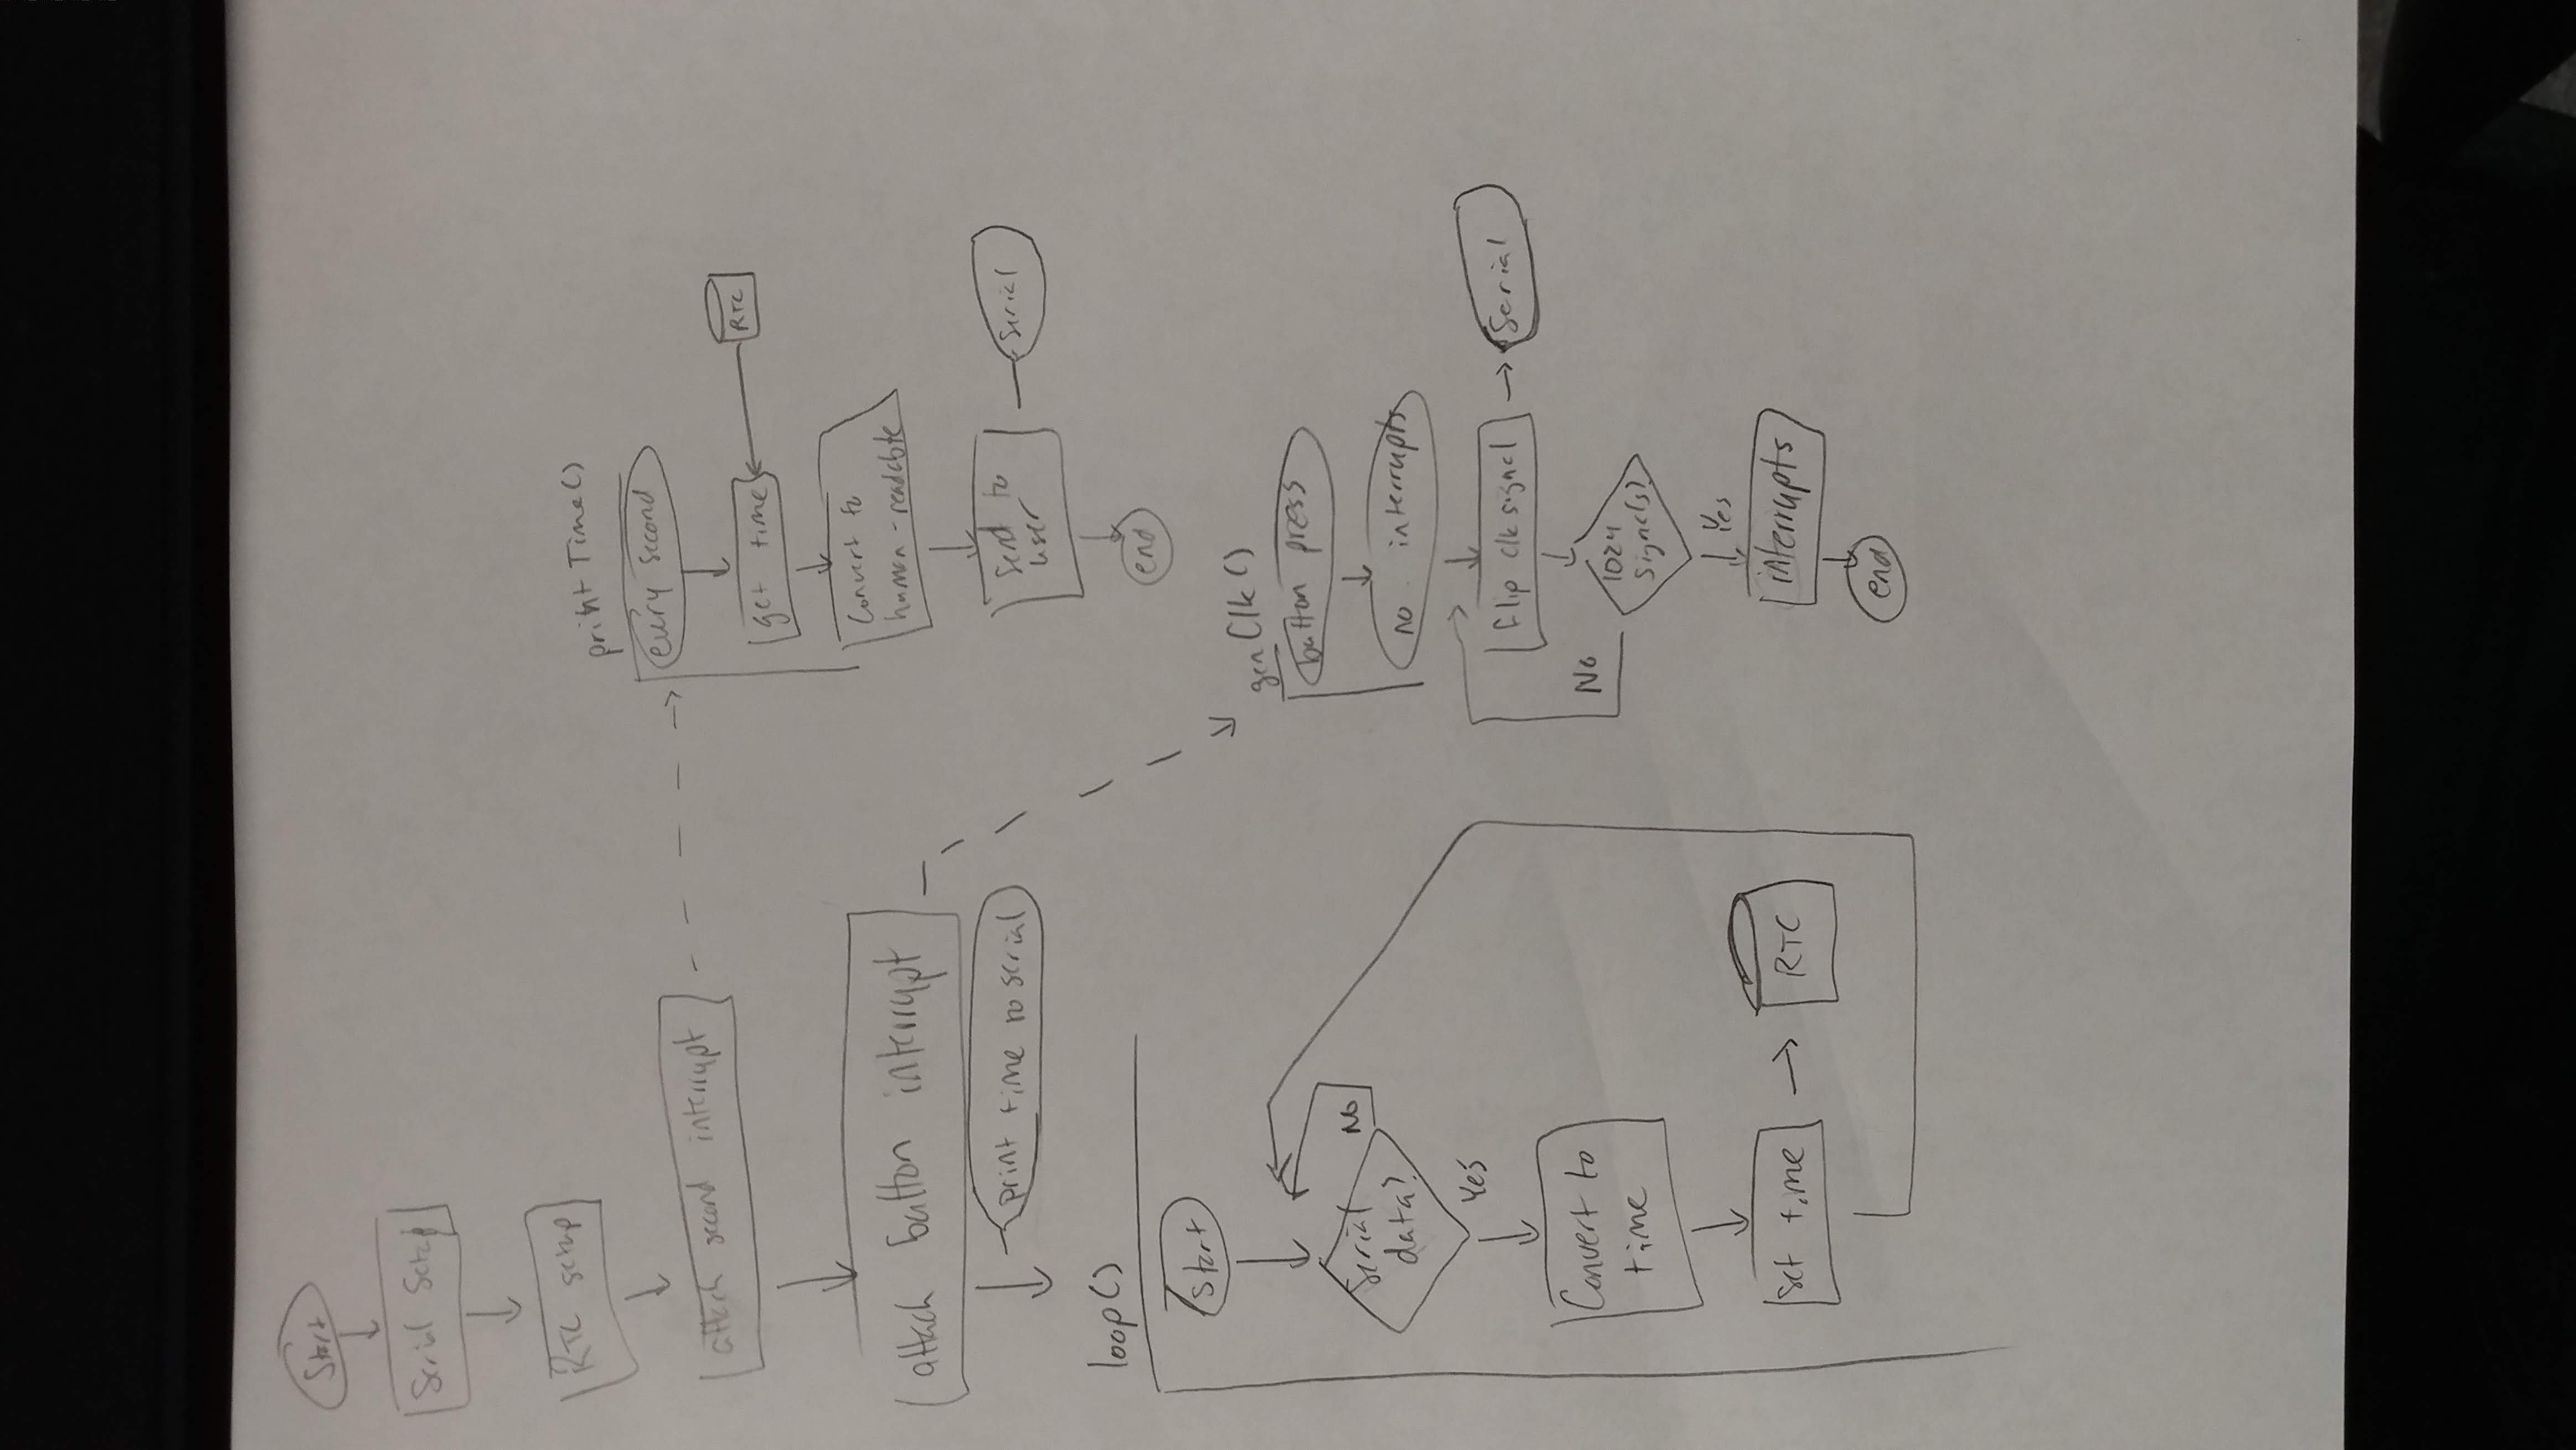 Start
Serial Setup
RTC setup
attach second interrupt
attach button interrupt
print time to serial
loop()
Start
Serial
data?
No
Yes
Convert to
time
set time
RTC
printTime()
every second
get time
RTC
Convert to
human-readable
Send to
user
Serial
end
genClk()
button press
no interrupts
flip clk signal
Serial
No
1024
signals?
Yes
interrupts
end